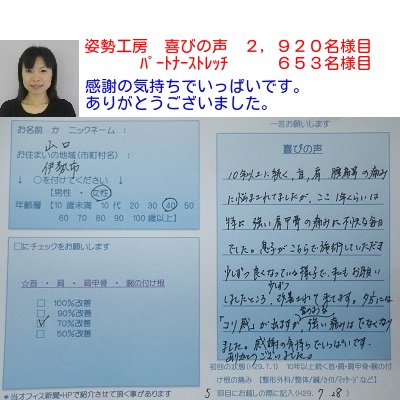 姿勢工房　喜びの声　２，９２０名様目
ﾊﾟｰﾄﾅｰｽﾄﾚｯﾁ　　６５３名様目
感謝の気持ちでいっぱいです。
ありがとうございました。
お名前 か ニックネーム ：
山口
お住まいの地域(市町村名)：
伊勢市
↓ ○を付けてください ↓
【男性 ・ 女性】
年齢層 【10歳未満 10代 20 30 40 50
60 70 80 90 100歳以上】
□にチェックをお願いします
☆首 ・ 肩 ・ 肩甲骨 ・ 腕の付け根
□ 100%改善
□ 90%改善
☑ 70%改善
□ 50%改善
＊当オフィス新聞・HPで紹介させて頂く事があります
一言お願いします
喜びの声
10年以上に続く、首、肩、腰背骨の痛み
に悩まされてましたが、ここ1年くらいは
特に強い肩甲骨の痛みに不快な毎日
でした。息子がこちらで施術していただき
少しずつ良くなっている様子で、私もお願い
しましたところ、少しずつ改善されて来てます。
「コリ感」が出ますが、強い痛みはでなくなり
ました。感謝の気持ちでいっぱいです。
ありがとうございました。
初回の状態 (H29.7.1) 10年以上続く首・肩・肩甲骨・腕の
付け根の痛み
5回目にお越しの際に記入 (H29.7.28)